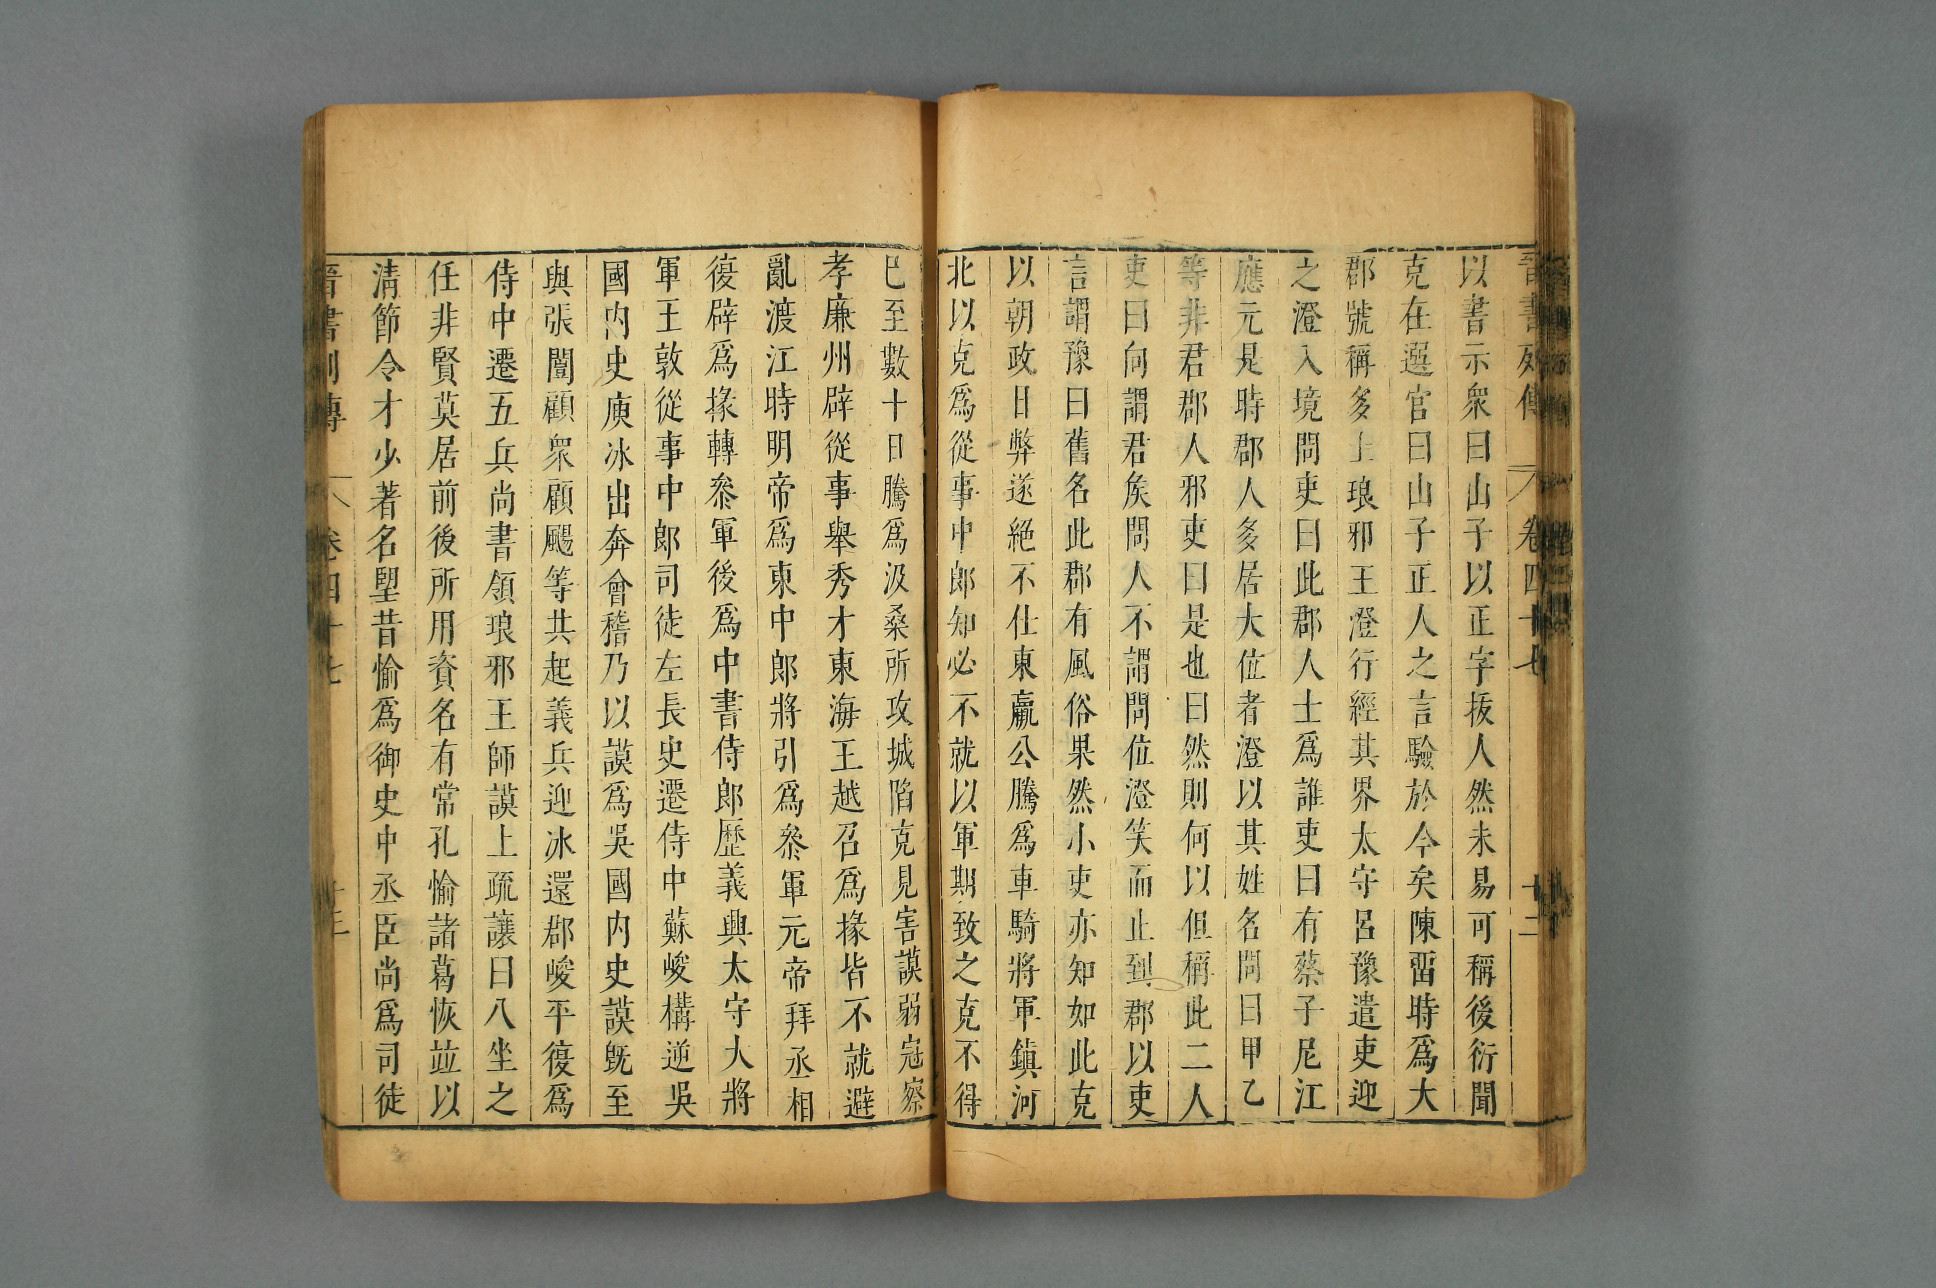 晉書列傳 卷四十七 十二
以書示衆曰山子以正字拔人然未易可稱後衍聞
克在選官曰山子正人之言驗於今矣陳畱時爲大
郡號稱多士琅邪王澄行經其界太守呂豫遣吏迎
之澄入境問吏曰此郡人士爲誰吏曰有蔡子尼江
應元是時郡人多居大位者澄以其姓名問曰甲乙
等非君郡人邪吏曰是也曰然則何以但稱此二人
吏曰向謂君矦問人不謂問位澄笑而止到郡以吏
言謂豫曰舊名此郡有風俗果然小吏亦知如此克
以朝政日弊遂絕不仕東嬴公騰爲車騎將軍鎮河
北以克爲從事中郎知必不就以軍期致之克不得
已至數十日騰爲汲桑所攻城陷克見害謨弱冠察
孝廉州辟從事舉秀才東海王越召爲掾皆不就避
亂渡江時明帝爲東中郎將引爲叅軍元帝拜丞相
復辟爲掾轉叅軍後爲中書侍郎歷義興太守大將
軍王敦從事中郎司徒左長史遷侍中蘇峻構逆吳
國內史庾冰出奔會稽乃以謨爲吳國內史謨既至
與張闓顧衆顧颺等共起義兵迎冰還郡峻平復爲
侍中遷五兵尚書領琅邪王師謨上疏讓曰八坐之
任非賢莫居前後所用資名有常孔愉諸葛恢竝以
清節令才少著名望昔愉爲御史中丞臣尚爲司徒
晉書列傳 卷四十七